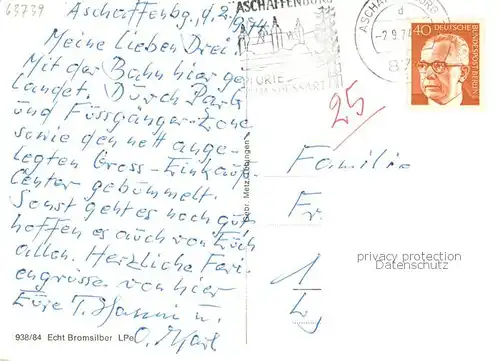 63739
Aschaffenbg, d. 2.9.74
Meine lieben Drei!
Mit der Bahn hier ge-
landet. Durch Park
und Füssgänger-Zone
sowie den nett ange-
legten Gross-Einkaufs-
Center gebümmelt.
Sonst geht es noch gut
hoffen es auch von Euch
allen. Herzliche Feri-
engrüsse von hier
Eure T. Hanni u.
O. Karl
938/84 Echt Bromsilber LPe
Gebr. Metz, Tübingen
ASCHAFFENBURG
SPESSART
ASCHAFFENBURG
d
-2.9.74
40
DEUTSCHE
BUNDESPOST BERLIN
25
Familie
Fr.
privacy protection
Datenschutz